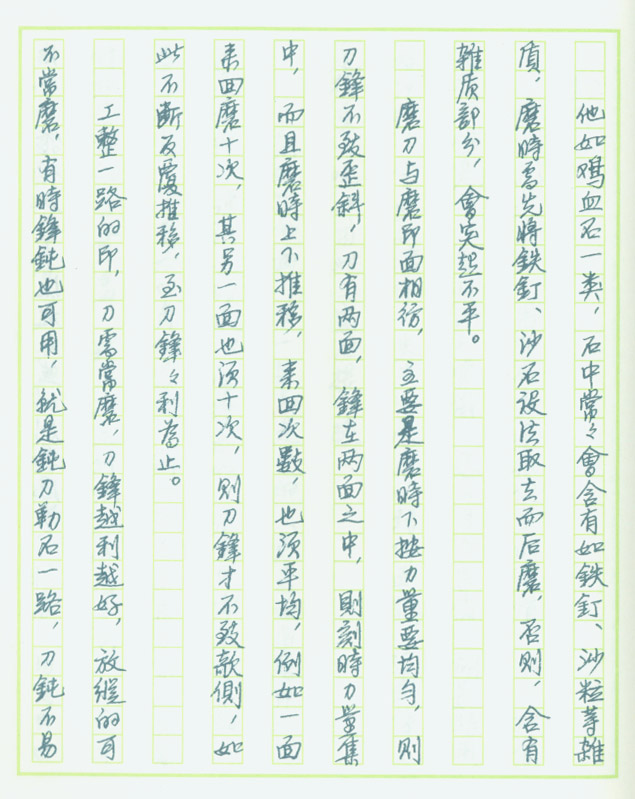 他如鸡血石一类，石中常々會含有如鉄釘、沙粒等雜
質，磨時需先將鉄釘、沙石设法取去而后磨，否则，含有
雜质部分，會突起不平。
磨刀与磨印面相彷，主要是磨時下按力量要均匀，则
刀鋒不致歪斜，刀有两面，鋒在两面之中，則刻時力量集
中，而且磨時上下推移，来回次數，也须平均，例如一面
来回磨十次，其另一面也须十次，则刀鋒才不致欹側，如
此不断反覆推移，至刀鋒々利為止。
工整一路的印，刀需常磨，刀鋒越利越好，放縱的可
不常磨，有時鋒鈍也可用，就是鈍刀勒石一路，刀鈍不易